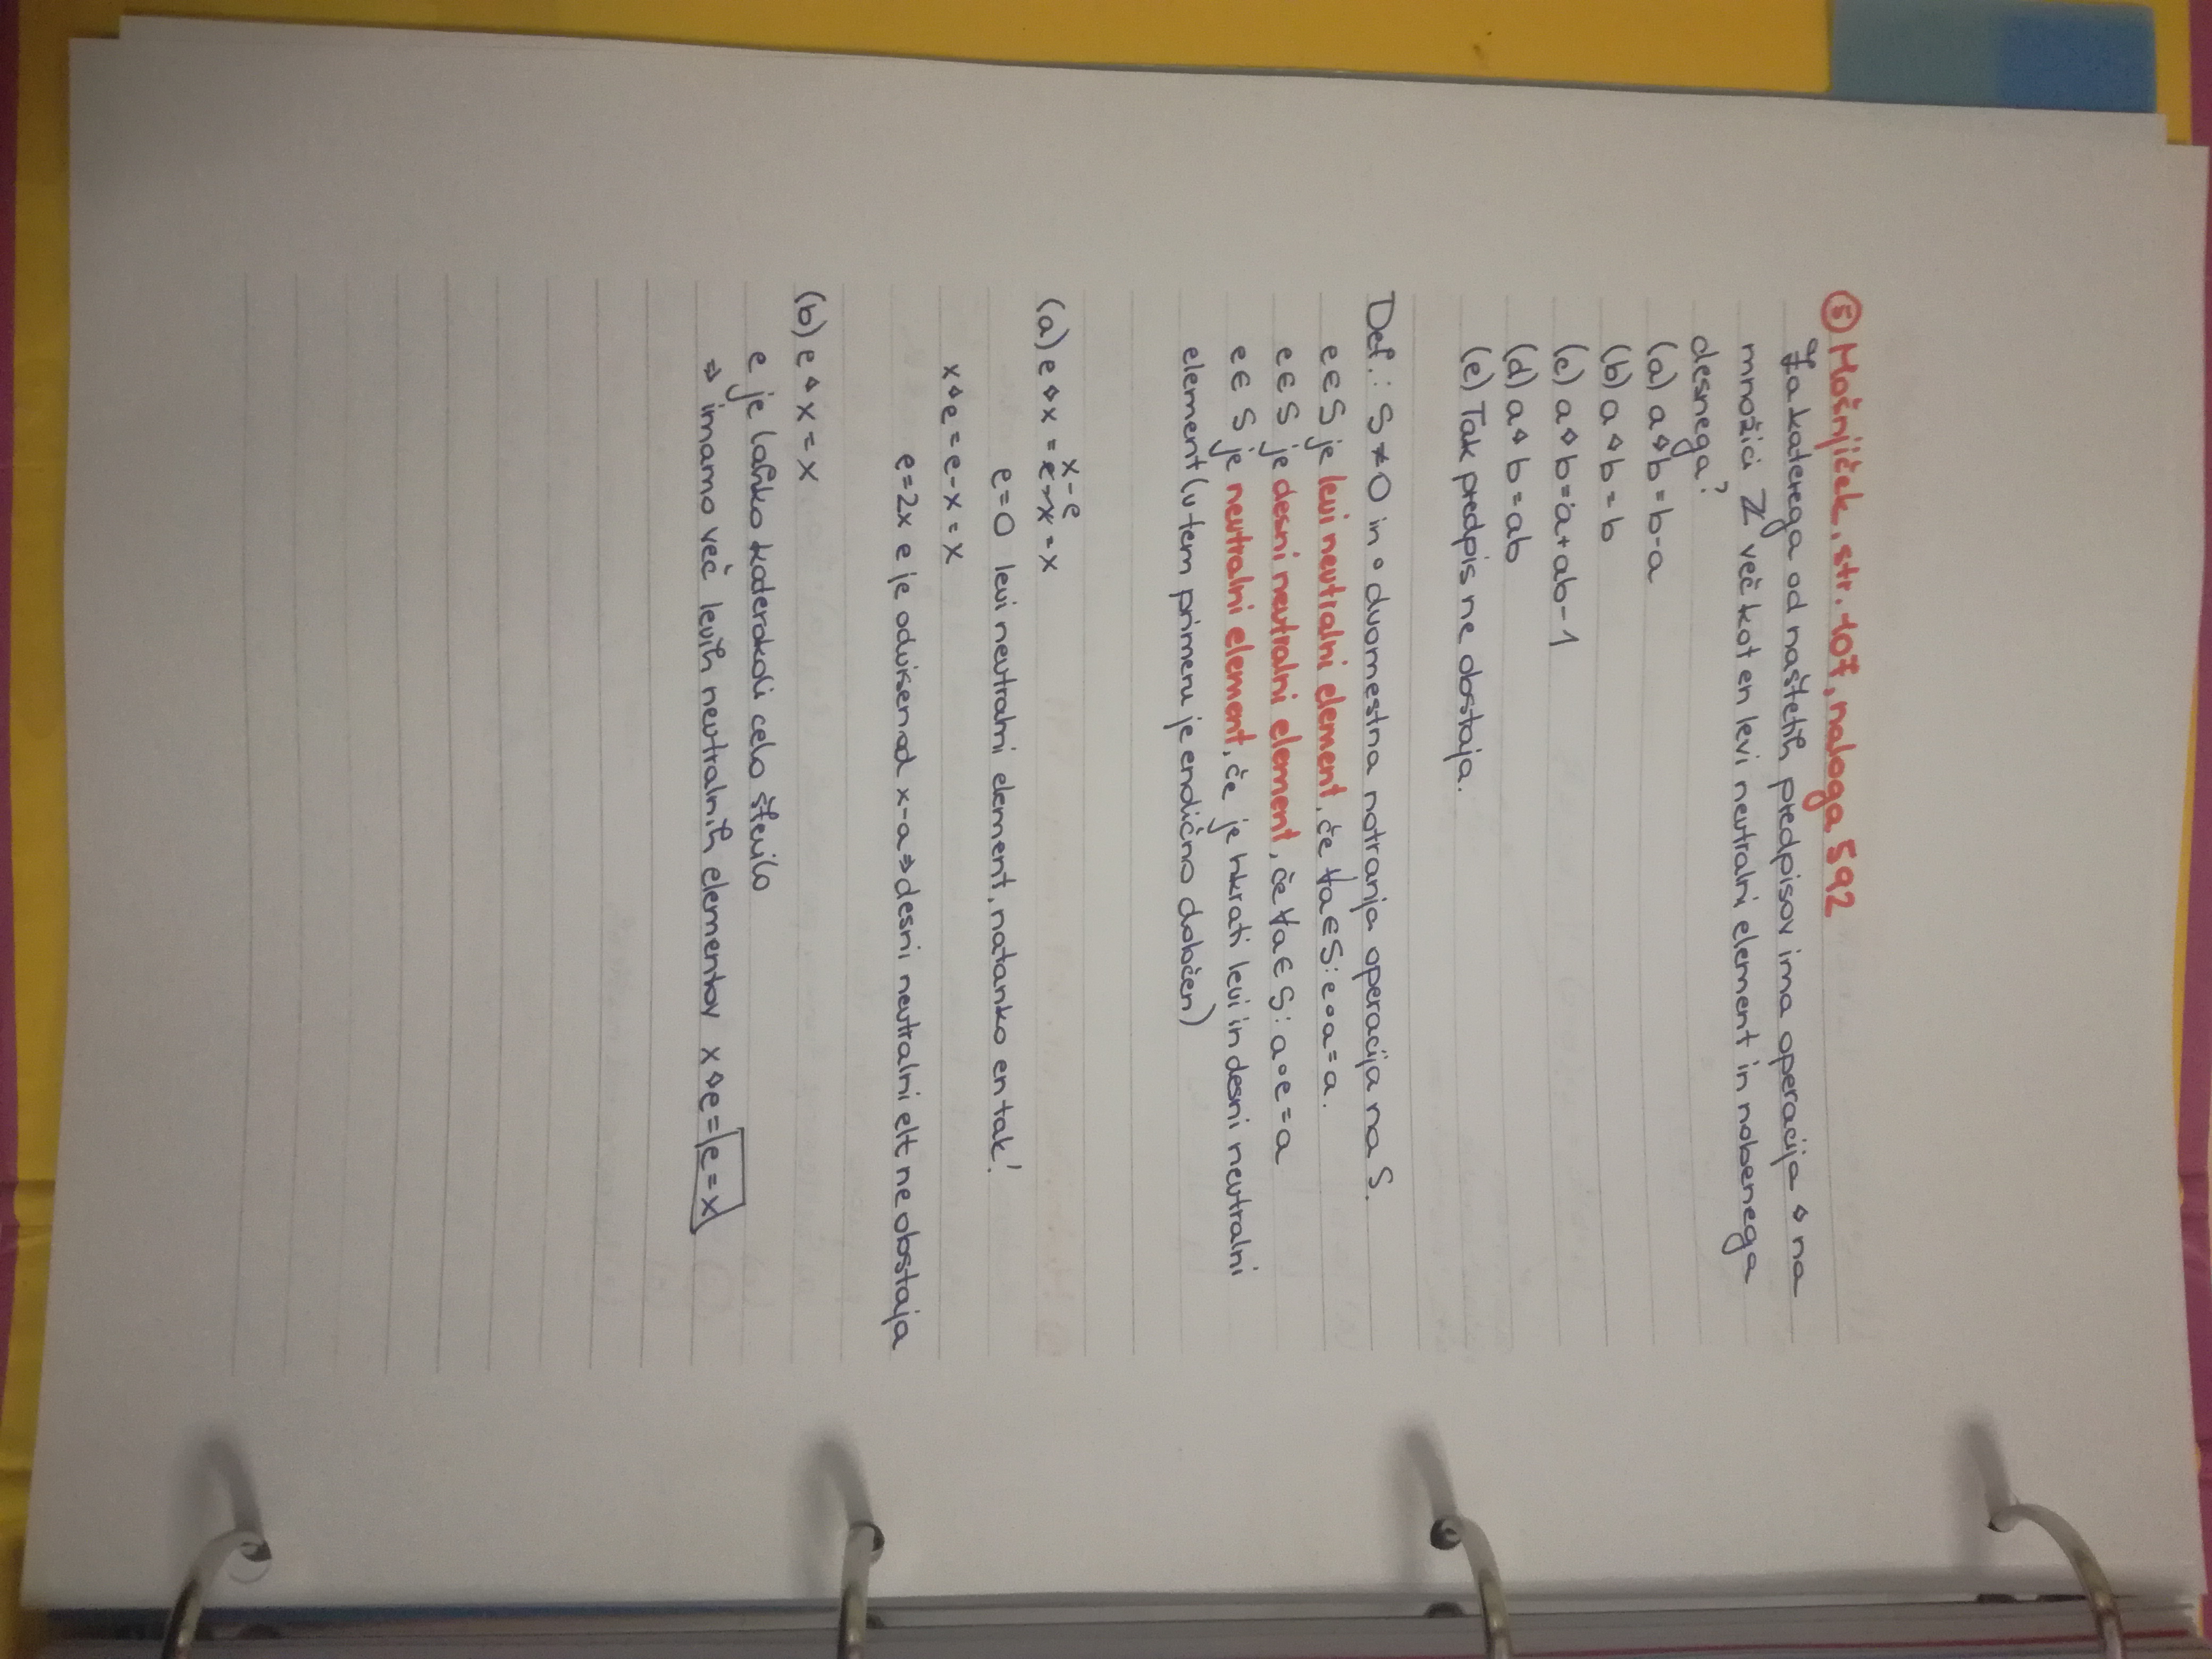 ⑤ Mošnjiček, str. 107, naloga 592
Za katerega od naštetih predpisov ima operacija ⋄ na
množici ℤ več kot en levi neutralni element in nobenega
desnega?
(a) a⋄b=b-a
(b) a⋄b=b
(c) a⋄b=a+ab-1
(d) a⋄b=ab
(e) Tak predpis ne obstaja.
Def.: S≠0 in ∘ dvomestna notranja operacija na S.
e∈S je levi neutralni element, če ∀a∈S: e∘a=a.
e∈S je desni neutralni element, če ∀a∈S: a∘e=a
e∈S je neutralni element, če je hkrati levi in desni neutralni
element (v tem primeru je enolično določen)
x-e
(a) e⋄x = e-x = x
e=0 levi neutralni element, natanko en tak!
x⋄e = e-x = x
e=2x e je odvisen od x-a ⇒ desni neutralni elt ne obstaja
(b) e⋄x = x
e je lahko katerokoli celo število
⇒ imamo več levih neutralnih elementov x⋄e = e=x